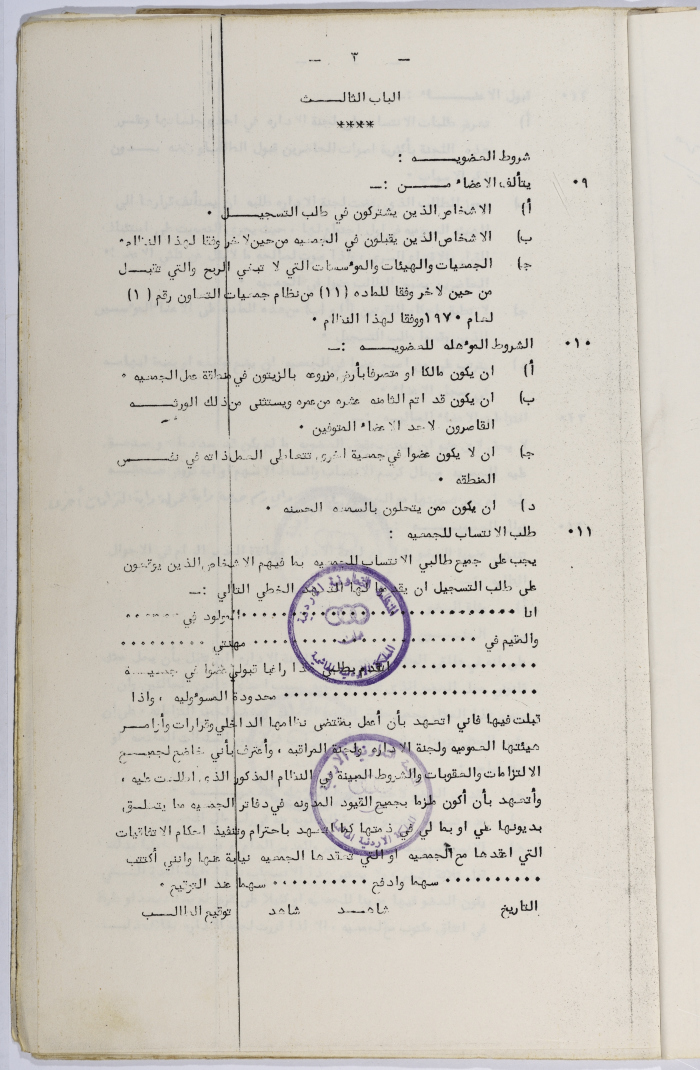 - ٣ -
الباب الثالث
****
شروط العضويه :
٠٩ يتألف الاعضاء من :-
أ) الاشخاص الذين يشتركون في طلب التسجيل ٠
ب) الاشخاص الذين يقبلون في الجمعيه من حين لاخر وفقا لهذا النظام٠
ج) الجمعيات والهيئات والمؤسسات التي لا تبغي الربح والتي تقبل
من حين لاخر وفقا للماده (١١) من نظام جمعيات التعاون رقم (١)
لعام ١٩٧٠ ووفقا لهذا النظام ٠
٠١٠ الشروط المؤهله للعضويه :-
أ) ان يكون مالكا او متصرفا بأرض مزروعه بالزيتون في منطقة عمل الجمعيه ٠
ب) ان يكون قد اتم الثامنه عشره من عمره ويستثنى من ذلك الورثه
القاصرون لاحد الاعضاء المتوفين ٠
ج) ان لا يكون عضوا في جمعية اخرى تتعاطى العمل ذاته في نفس
المنطقه ٠
د) ان يكون ممن يتحلون بالسمعه الحسنه ٠
٠١١ طلب الانتساب للجمعيه :
يجب على جميع طالبي الانتساب للجمعيه بما فيهم الاشخاص الذين يوقعون
على طلب التسجيل ان يقدموا لها التعهد الخطي التالي :-
انا ٠٠٠٠٠٠٠٠٠٠٠٠٠٠٠٠٠٠٠٠ المولود في ٠٠٠٠٠٠
والمقيم في ٠٠٠٠٠٠٠٠٠٠٠٠٠٠٠٠ مهنتي ٠٠٠٠٠٠٠٠٠
٠٠٠٠٠٠٠٠٠٠٠ اتقدم بطلبي هذا راغبا قبولي عضوا في جمعية
٠٠٠٠٠٠٠٠٠٠٠٠٠٠٠٠٠٠٠٠ محدودة المسؤوليه ، واذا
قبلت فيها فاني اتعهد بأن أعمل بمقتضى نظامها الداخلي وقرارات وأوامر
هيئتها العموميه ولجنة الاداره ولجنة المراقبه ، وأعترف بأني خاضع لجميع
الالتزامات والعقوبات والشروط المبينة في النظام المذكور الذي اطلعت عليه ،
وأتعهد بأن أكون ملزما بجميع القيود المدونه في دفاتر الجمعيه مما يتعلق
بديونها علي او بما لي في ذمتها كما اتعهد باحترام وتنفيذ احكام الاتفاقيات
التي اعقدها مع الجمعيه او التي تعقدها الجمعيه نيابة عنها وانني أكتتب
٠٠٠٠٠٠٠٠٠٠ سهما وادفع ٠٠٠٠٠٠٠٠٠٠ سهما عند التوقيع ٠
التاريخ شاهد شاهد توقيع الطالب